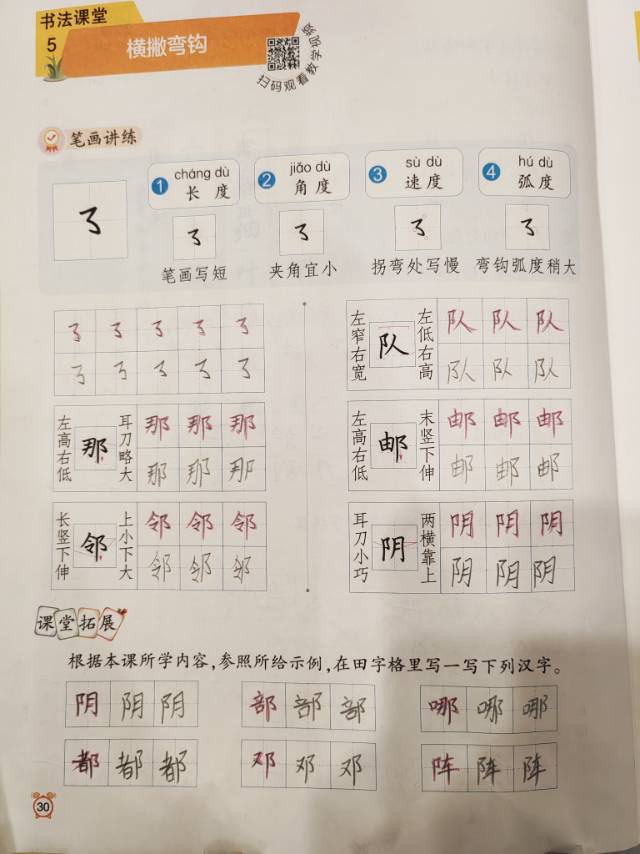 书法课堂
5
横撇弯钩
扫码观看教学视频
笔画讲练
㇌
1 cháng dù 长度
㇌
笔画写短
2 jiǎo dù 角度
㇌
夹角宜小
3 sù dù 速度
㇌
拐弯处写慢
4 hú dù 弧度
㇌
弯钩弧度稍大
㇌ ㇌ ㇌ ㇌ ㇌
㇌ ㇌ ㇌ ㇌ ㇌
左窄右宽 队 左低右高
队 队 队
队 队 队
左高右低 那 耳刀略大
那 那 那
那 那 那
左高右低 邮 末竖下伸
邮 邮 邮
邮 邮 邮
长竖下伸 邻 上小下大
邻 邻 邻
邻 邻 邻
耳刀小巧 阴 两横靠上
阴 阴 阴
阴 阴 阴
课堂拓展
根据本课所学内容,参照所给示例,在田字格里写一写下列汉字。
阴 阴 阴 部 部 部 哪 哪 哪
都 都 都 邓 邓 邓 阵 阵 阵
30